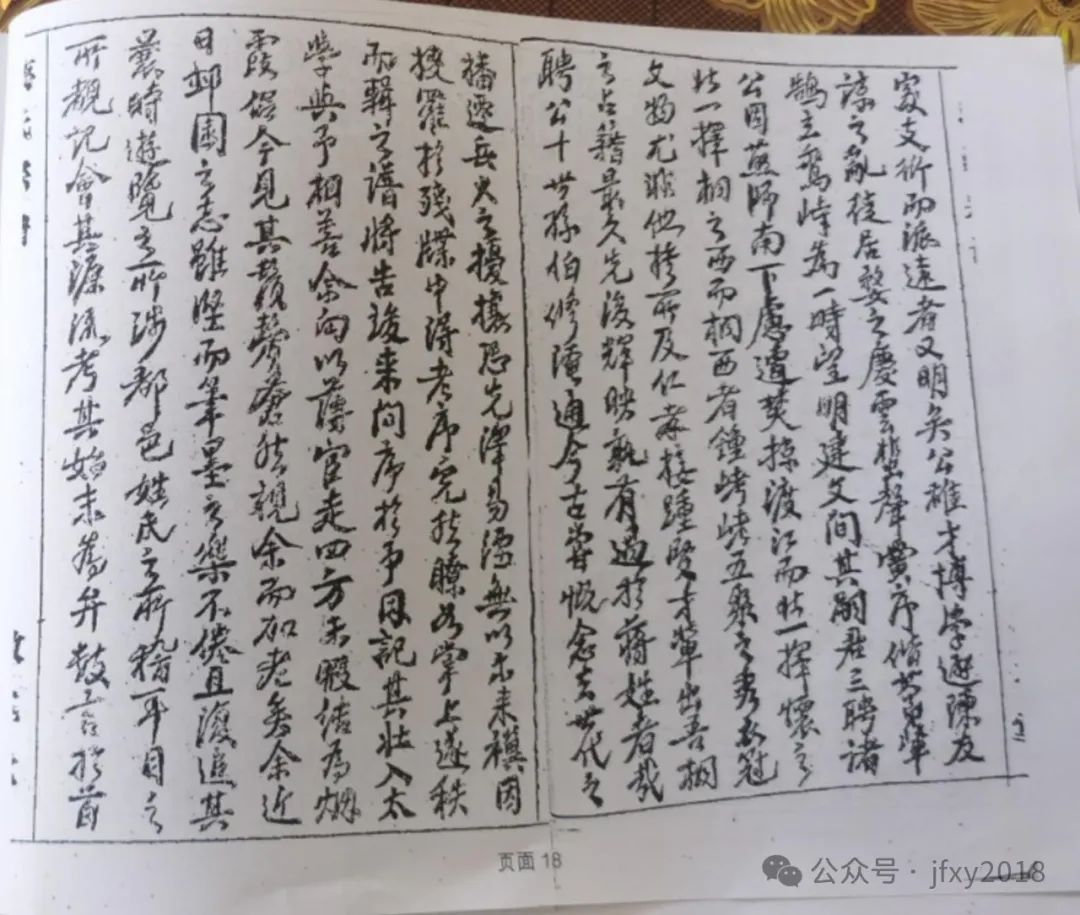 家支衍而派遠者又明矣公雄才博学避陳友
諒之亂徙居婺之慶雲蜚聲黌序偕弟輩
鵲立鸞峙為一時望明建文間其嗣君三聘諸
公因燕師南下慮遭焚掠渡江而北一擇懷之
北一擇桐之西而桐西者鐘峙峙五聚之秀衣冠
文物尤非他摅所及仁孝接踵賢才輩出吾桐
之占籍最久先後輝映孰有過於蔣姓者哉
聘公十世孫伯修通今古嘗慨念世代之
播遷兵火之擾攘恐先澤易湮無以示来禩因
搜羅於殘牒中得老序宛然瞭如掌上遂秩
而輯之譜將告竣来問序於予因記其壯入太
學與予相善余向以薄宦走四方未暇結為烟
霞侶今見其鬚鬢蒼然視余而加老矣余近
日邱園之志雖堅而筆墨之樂不倦且復追其
曩時遊覽之所涉都邑姓氏之所稽耳目之
所覩記會其源流考其始末為弁数言於首
页面 18
公众号·jfxy2018